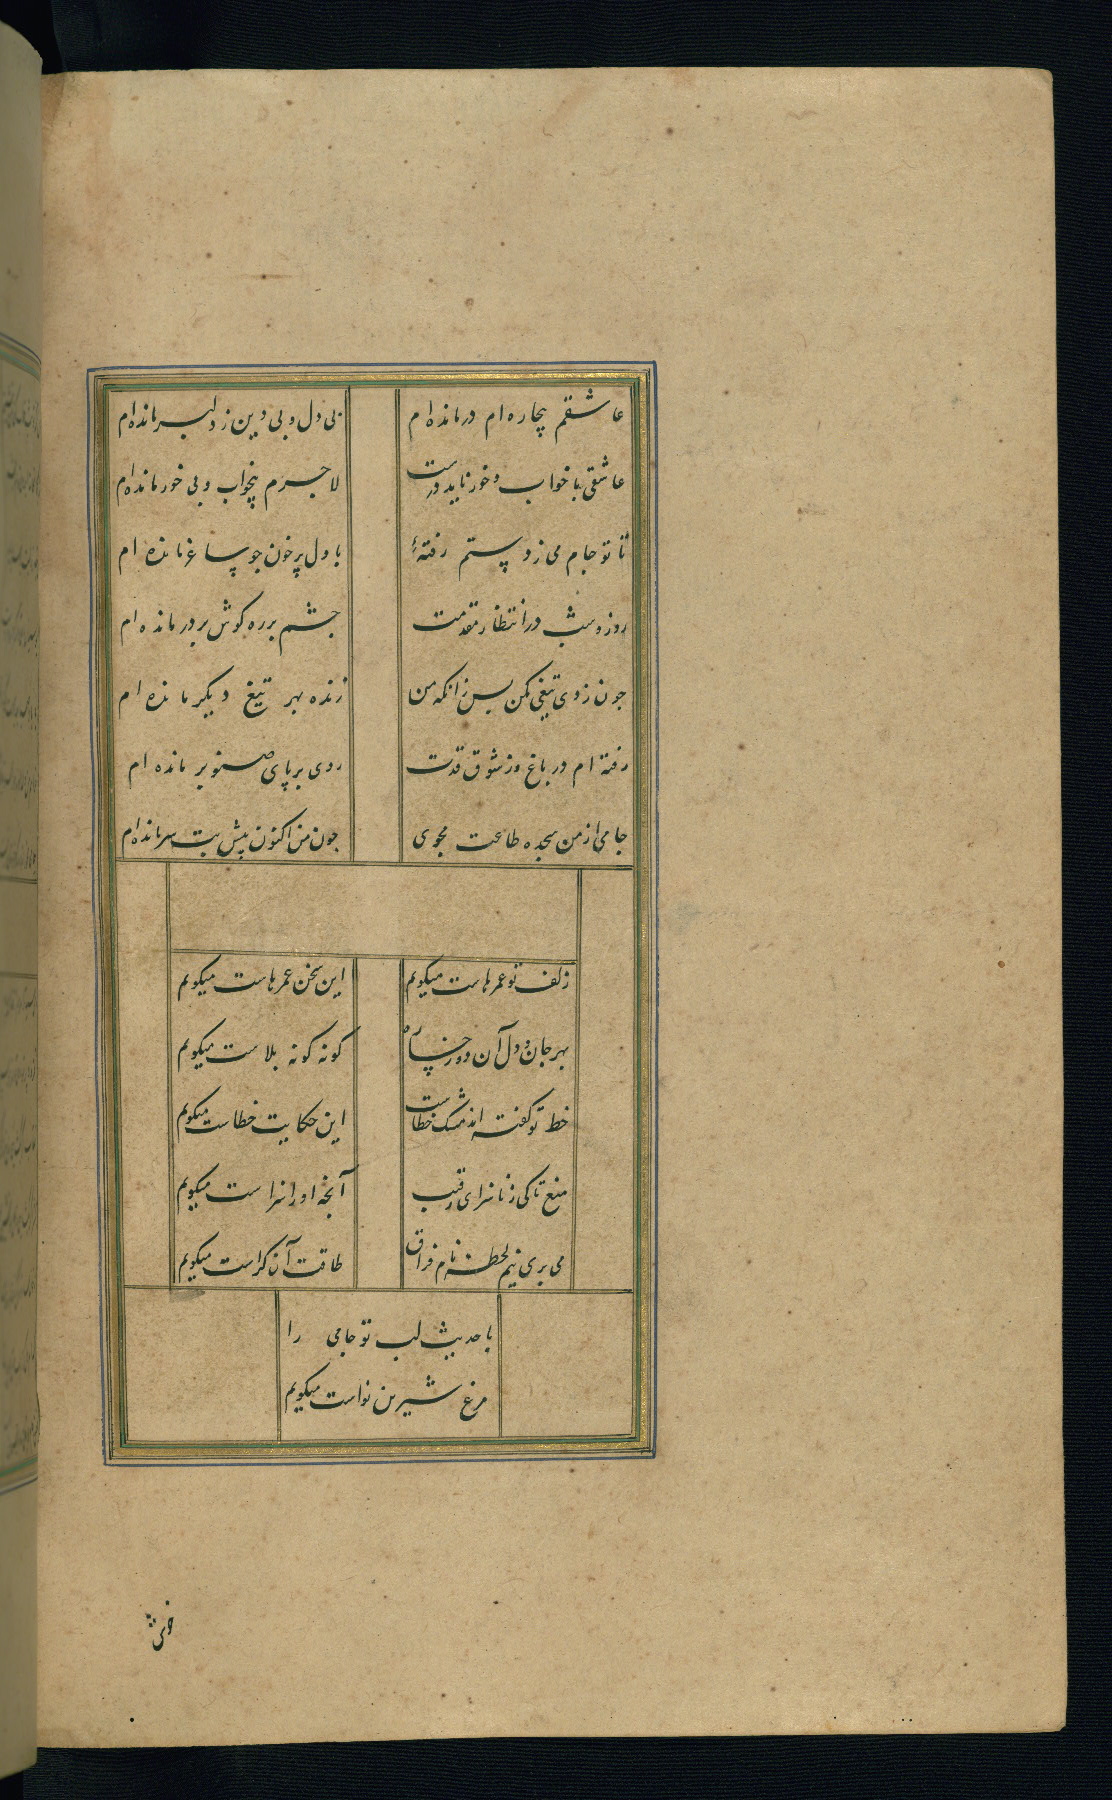 عاشقم بیچاره ام درمانده ام
بی دل و بی دین ز دلبر مانده ام
عاشقی با خواب و خور ناید درست
لاجرم بیخواب و بی خور مانده ام
تا تو جام می ز دستم رفتهٔ
با دل پر خون چو ساغر مانده ام
روز و شب در انتظار مقدمت
چشم بر ره کوش بر در مانده ام
چون زدی تیغی مکن بس زانکه من
زنده بهر تیغ دیکر مانده ام
رفته ام در باغ وز شوق قدت
روی بر پای صنوبر مانده ام
جامی از من سجده طاعت مجوی
چون من اکنون پیش بت سر مانده ام
زلف تو عمرهاست میکویم
این سخن عمرهاست میکویم
بهر جان و دل آن دو رخساره
کونه کونه بلاست میکویم
خط تو کفته اند مشک خطاست
این حکایت خطاست میکویم
منع تا کی ز ناسزای رقیب
آنچه او را سزاست میکویم
می بری نیم لحظه نام فراق
طاقت آن کراست میکویم
با حدیث لب تو جامی را
مرغ شیرین نواست میکویم